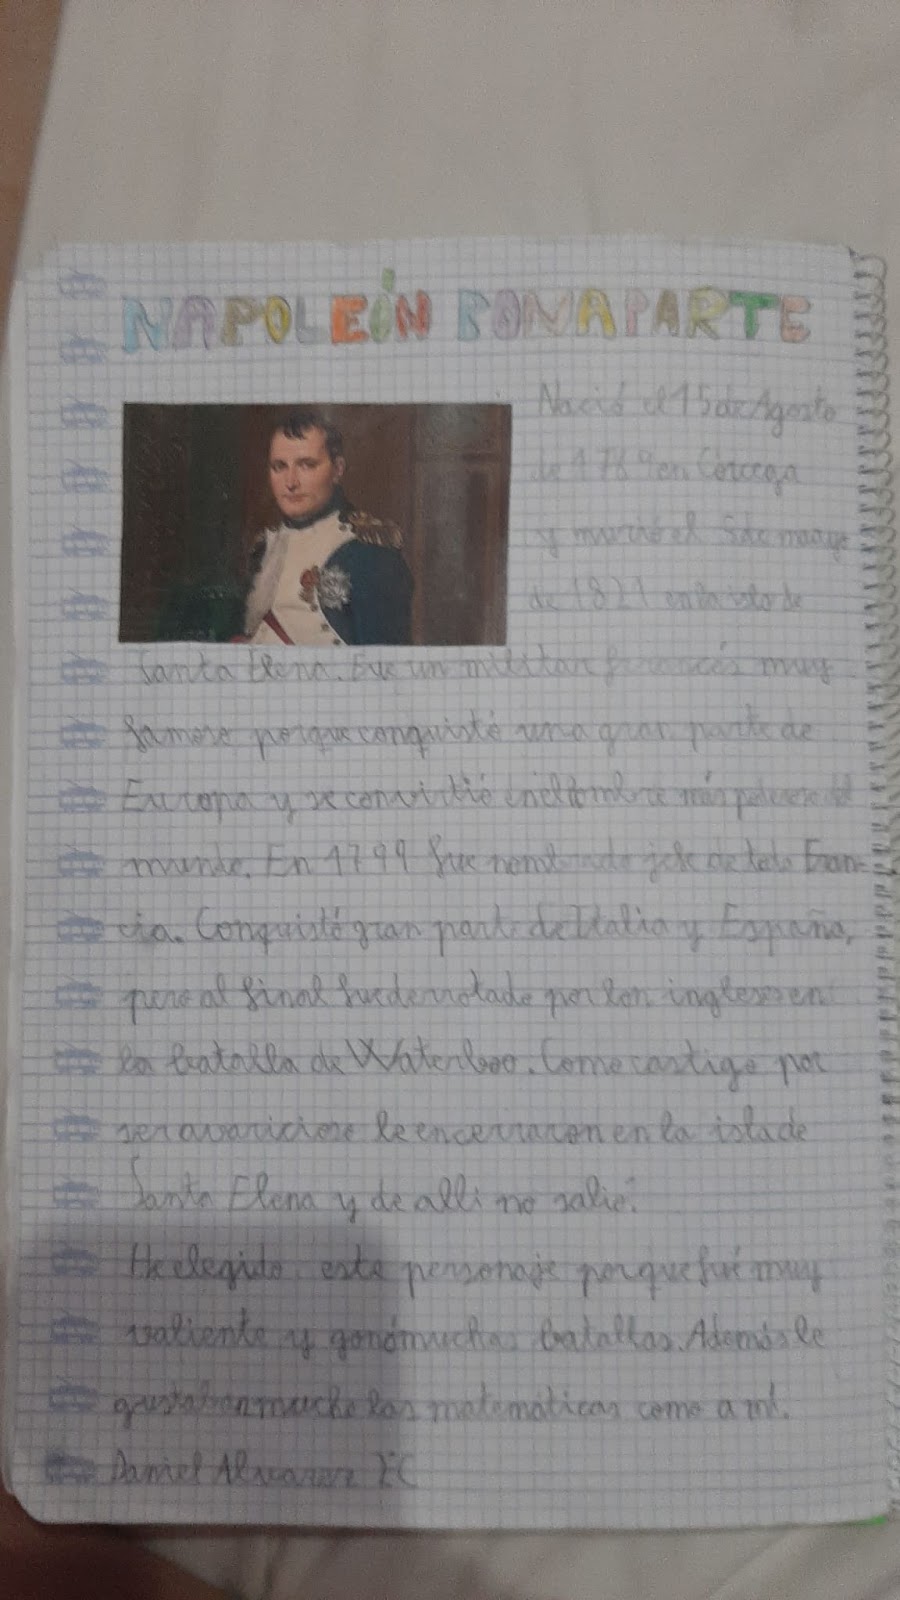 NAPOLEÓN BONAPARTE
Nació el 15 de Agosto
de 1769 en Córcega
y murió el 5 de mayo
de 1821 en la isla de
Santa Elena. Fue un militar francés muy
famoso porque conquistó una gran parte de
Europa y se convirtió en el hombre más poderoso del
mundo. En 1799 fue nombrado jefe de toda Fran-
cia. Conquistó gran parte de Italia y España,
pero al final fue derrotado por los ingleses en
la batalla de Waterloo. Como castigo por
ser avaricioso le encerraron en la isla de
Santa Elena y de alli no salió.
He elegido este personaje porque fué muy
valiente y ganó muchas batallas. Además le
gustaban mucho las matemáticas como a mí.
Daniel Alvarez